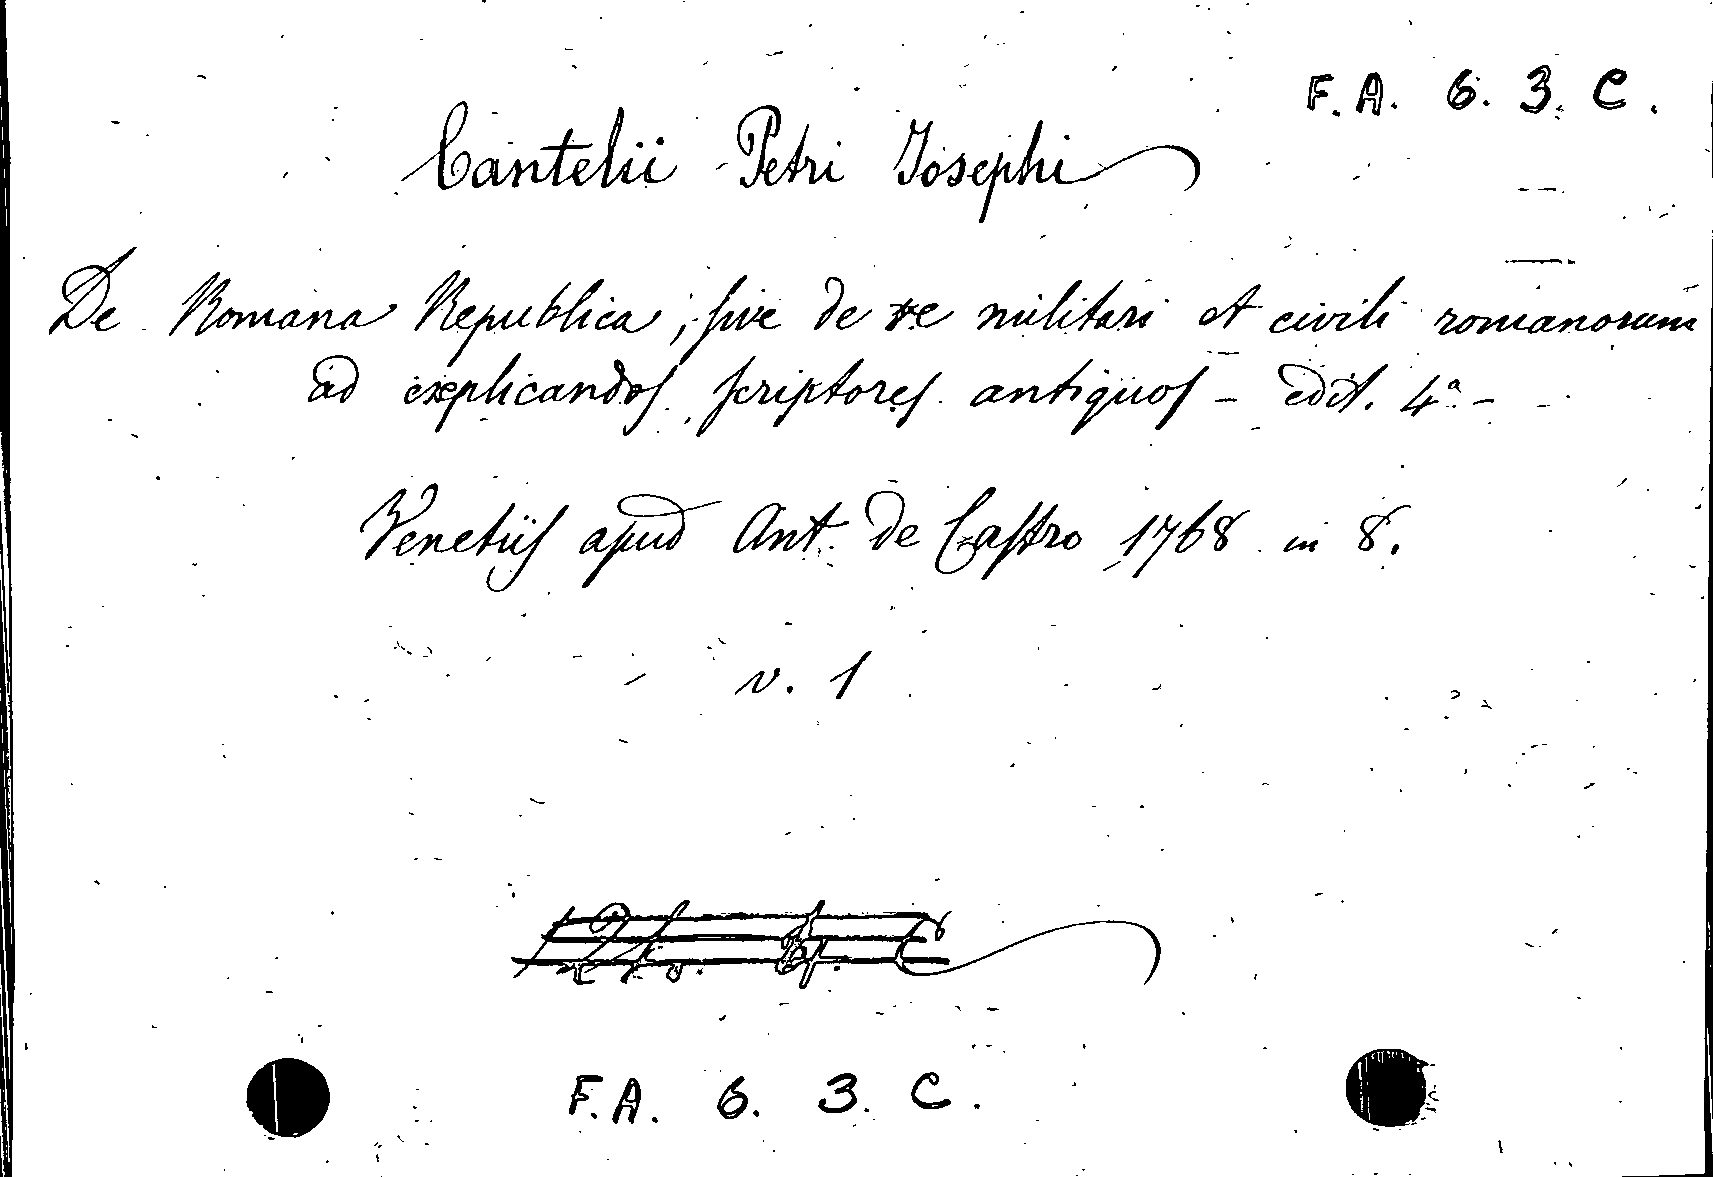 F.A. 6. 3. C.
Cantelii Petri Josephi
De Romana Republica, sive de re militari et civili romanorum
ad explicandos scriptores antiquos - edit. 4ª -
Venetiis apud Ant. de Castro 1768 in 8.
v. 1
F.A. 6. 3. C.